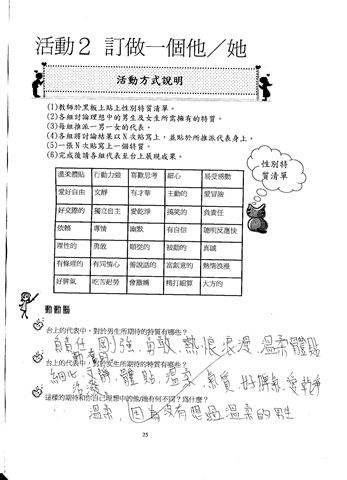 活動2 訂做一個他／她
活動方式說明
(1)教師於黑板上貼上性別特質清單。
(2)各組討論理想中的男生及女生所需擁有的特質。
(3)每組推派一男一女的代表。
(4)各組將討論結果以N次貼寫上，並貼於所推派代表身上。
(5)一張N次貼寫上一個特質。
(6)完成後請各組代表至台上展現成果。
性別特
質清單
溫柔體貼 行動力強 喜歡思考 細心 易受感動
愛好自由 文靜 有才華 主動的 愛冒險
好交際的 獨立自主 愛乾淨 搞笑的 負責任
依賴 專情 幽默 有自信 聰明反應快
理性的 勇敢 順從的 被動的 真誠
有條理的 有同情心 善說話的 富創意的 熱情浪漫
好脾氣 吃苦耐勞 會撒嬌 精打細算 大方的
動動腦
台上的代表中，對於男生所期待的特質有哪些？
負責任、剛強、勇敢、熱情浪漫、溫柔體貼
台上的代表中，對於女生所期待的特質有哪些？
細心、文靜、體貼、溫柔、氣質、好脾氣、愛乾淨
這樣的期待和你自己理想中的他/她有何不同？為什麼？
溫柔，因為沒有想過溫柔的男生
25